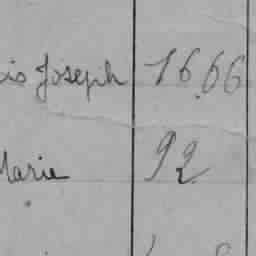 cis Joseph 16.66
Marie 92